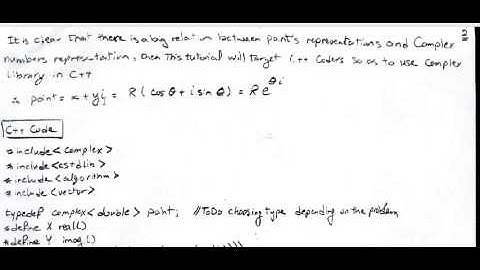 2
It is clear that there is a big relation between points representations and Complex
numbers representation, then this tutorial will target C++ coders so as to use Complex
Library in C++
∴ point = x + yi = R ( cos θ + i sin θ ) = R e^θi
C++ Code
#include < complex >
#include < cstdlib >
#include < algorithm >
#include < vector >
typedef complex < double > point; //ToDo choosing type depending on the problem
#define X real()
#define Y imag()